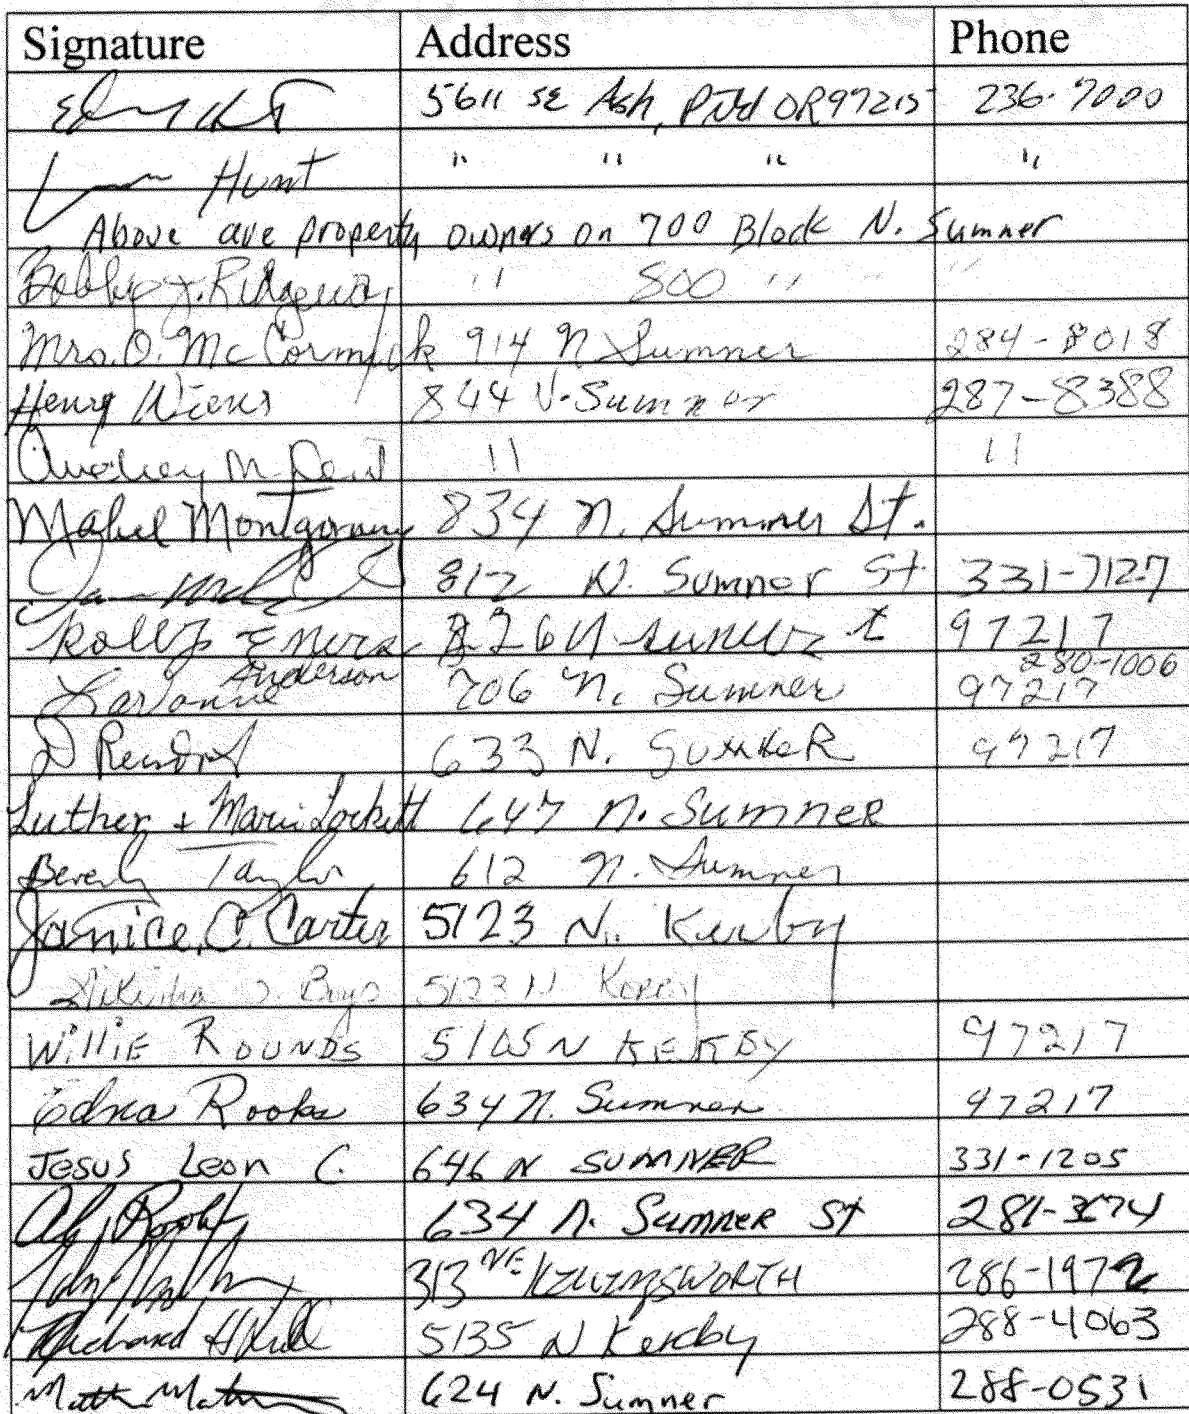 Signature Address Phone
5611 SE Ash, Ptld OR 97215 236-7000
Hunt " " " "
Above are property owners on 700 Block N. Sumner
Bobby J. Ridgeway " 800 " " "
Mrs. O. McCormick 914 N Sumner 284-8018
Henry Wiens 844 N. Sumner 287-8388
Audrey M. 11 11
Mabel Montgomery 834 N. Sumner St.
812 N. Sumner St 331-7127
826 N 97217
280-1006
LaVonne Anderson 706 N. Sumner 97217
D 633 N. SUMNER 97217
Luther + Marie Lockett 647 N. Sumner
Beverly Taylor 612 N. Sumner
Janice C. Carter 5123 N. Kerby
5123 N
WilliE ROUNDS 5105 N KERBY 97217
Edna Rooks 634 N. Sumner 97217
Jesus Leon C. 646 N SUMNER 331-1205
634 N. Sumner St
313 NE KILLINGSWORTH 286-1972
Richard 5135 N Kerby 288-4063
Matt 624 N. Sumner 288-0531